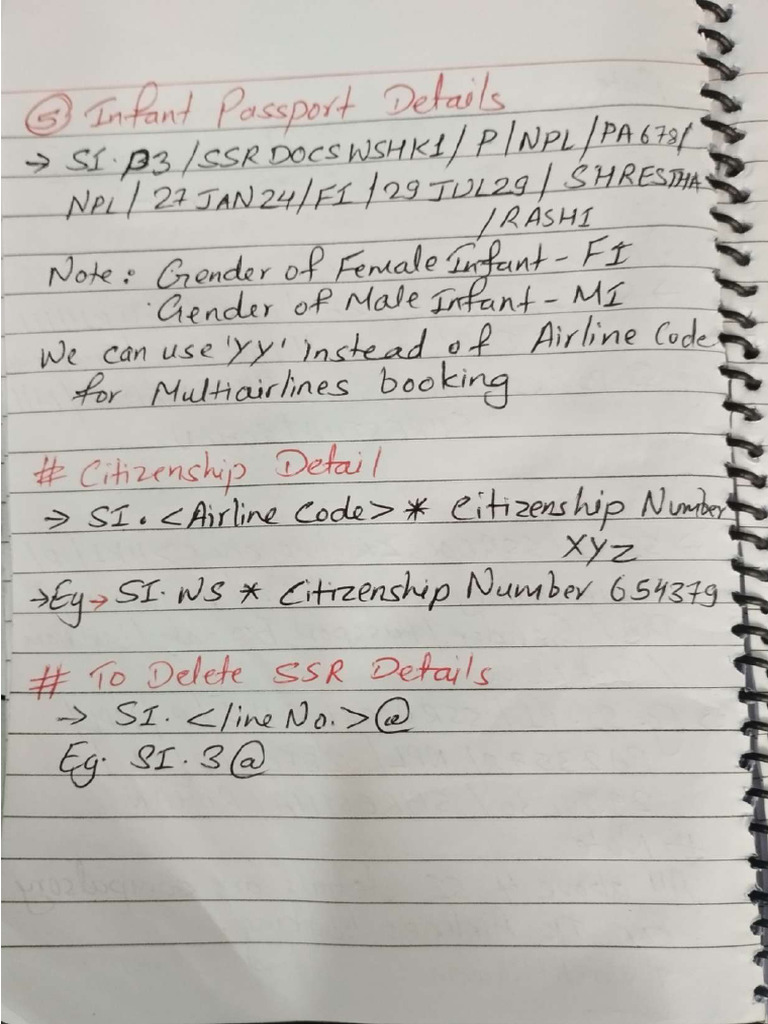 ⑤ Infant Passport Details
→ SI.P3/SSRDOCSWSHK1/P/NPL/PA678/
NPL/27JAN24/FI/29JUL29/SHRESTHA
/RASHI
Note: Gender of Female Infant - FI
Gender of Male Infant - MI
We can use 'YY' instead of Airline Code
for Multiairlines booking
# Citizenship Detail
→ SI.<Airline Code>* Citizenship Number
XYZ
→Eg→ SI.WS * Citizenship Number 654379
# To Delete SSR Details
→ SI.<line No.>@
Eg. SI.3@